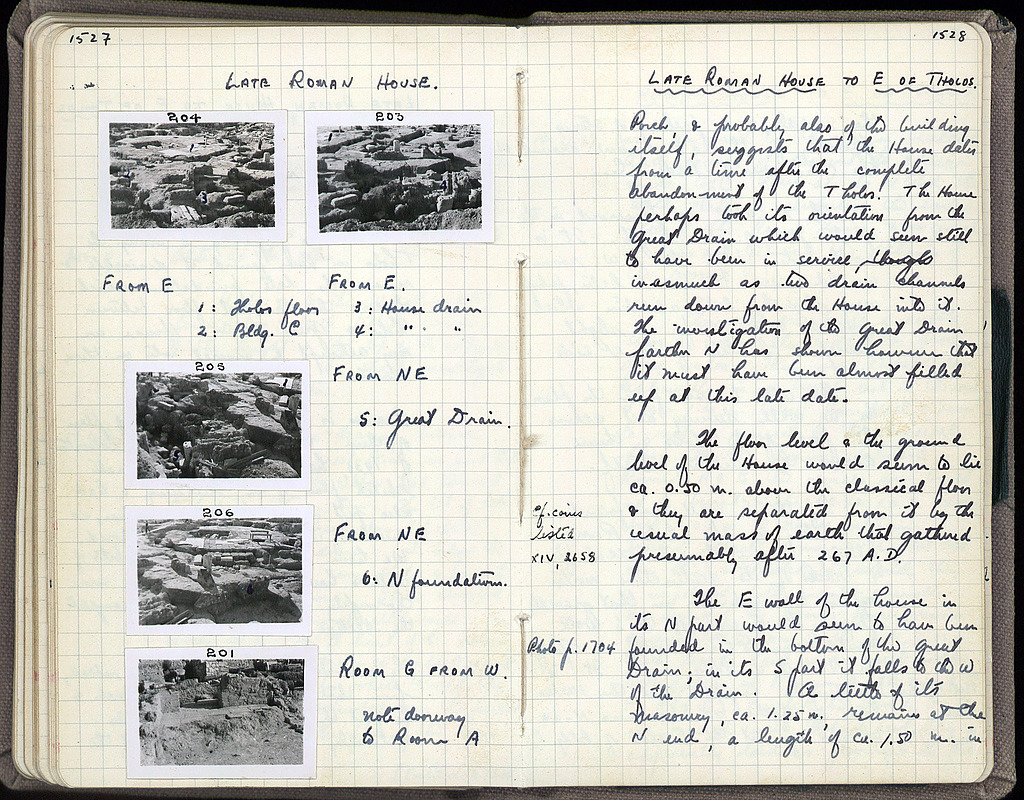 1527
LATE ROMAN HOUSE.
204
203
FROM E
1: Tholos floor
2: Bldg. C
FROM E.
3: House drain
4: " "
205
FROM NE
5: Great Drain.
206
FROM NE
6: N foundation.
201
ROOM G FROM W.
note doorway
to Room A
1528
LATE ROMAN HOUSE TO E OF THOLOS.
Porch, & probably also of the building
itself, suggests that the House dates
from a time after the complete
abandonment of the Tholos. The House
perhaps took its orientation from the
Great Drain which would seem still
to have been in service, though
inasmuch as two drain channels
run down from the House into it.
The investigation of the Great Drain
farther N has shown however that
it must have been almost filled
up at this late date.
The floor level & the ground
level of the House would seem to lie
ca. 0.50 m. above the classical floor
& they are separated from it by the
usual mass of earth that gathered
presumably after 267 A.D.
cf. coins
listed
XIV, 2658
The E wall of the house in
its N part would seem to have been
founded in the bottom of the Great
Drain; in its S part it falls to the W
of the Drain. A little of its
masonry, ca. 1.25 m, remains at the
N end, a length of ca. 1.50 m. in
Photo p. 1704